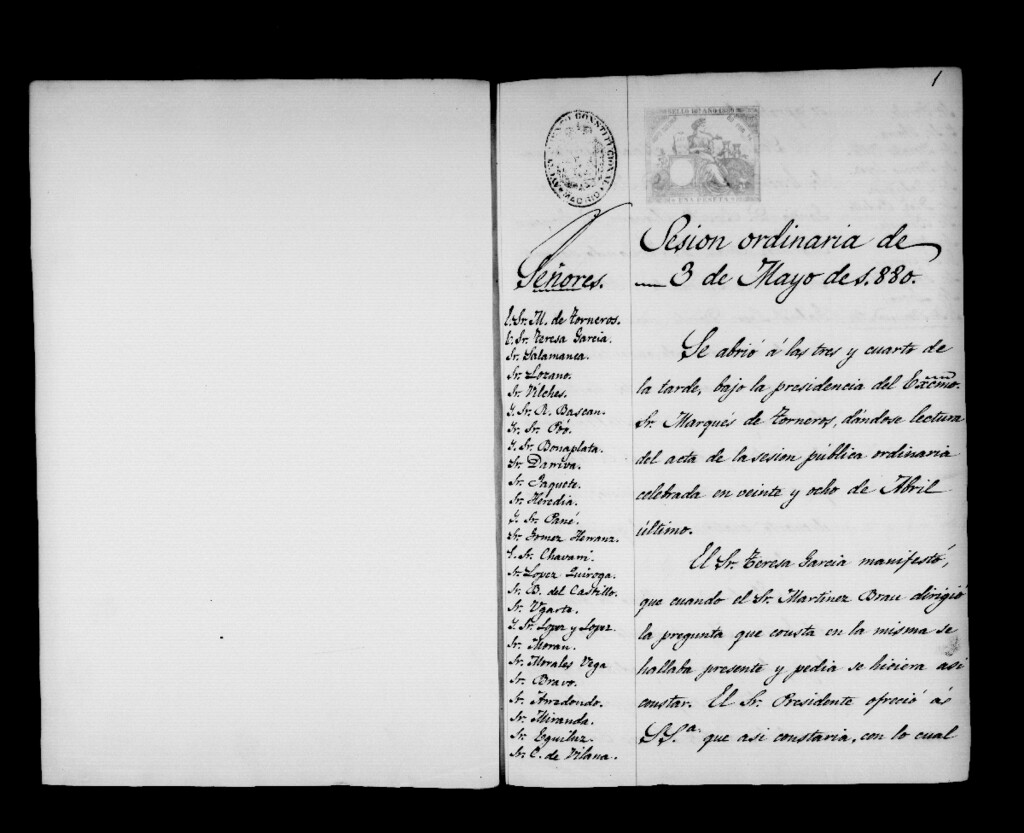 1
AYUNTAMIENTO CONSTITUCIONAL
MADRID
UNA PESETA
Sesion ordinaria de
3 de Mayo de 1.880.
Señores.
E. Sr. M. de Torneros.
E. Sr. Teresa Garcia.
Sr. Salamanca.
Sr. Lozano.
Sr. Vilches.
Y. Sr. R. Bascan.
Sr.
Y. Sr. Bonaplata.
Sr.
Sr. Paquete.
Sr. Heredia.
Y. Sr. Pané.
Sr. Gomez Herranz.
Y. Sr. Chavarri.
Sr. Lopez Quiroga.
Sr. B. del Castillo.
Sr. Ugarte.
Y. Sr. Lopez y Lopez.
Sr. Moran.
Sr. Morales Vega
Sr. Bravo.
Sr. Arredondo.
Sr. Miranda.
Sr. Eguiluz.
Sr. C. de Vilana.
Se abrió á las tres y cuarto de
la tarde, bajo la presidencia del Excmo.
Sr. Marqués de Torneros, dándose lectura
del acta de la sesion pública ordinaria
celebrada en veinte y ocho de Abril
último.
El Sr. Teresa Garcia manifestó,
que cuando el Sr. Martinez Brau dirigió
la pregunta que consta en la misma se
hallaba presente y pedia se hiciera asi
constar. El Sr. Presidente ofreció á
S.S.ª que asi constaria, con lo cual